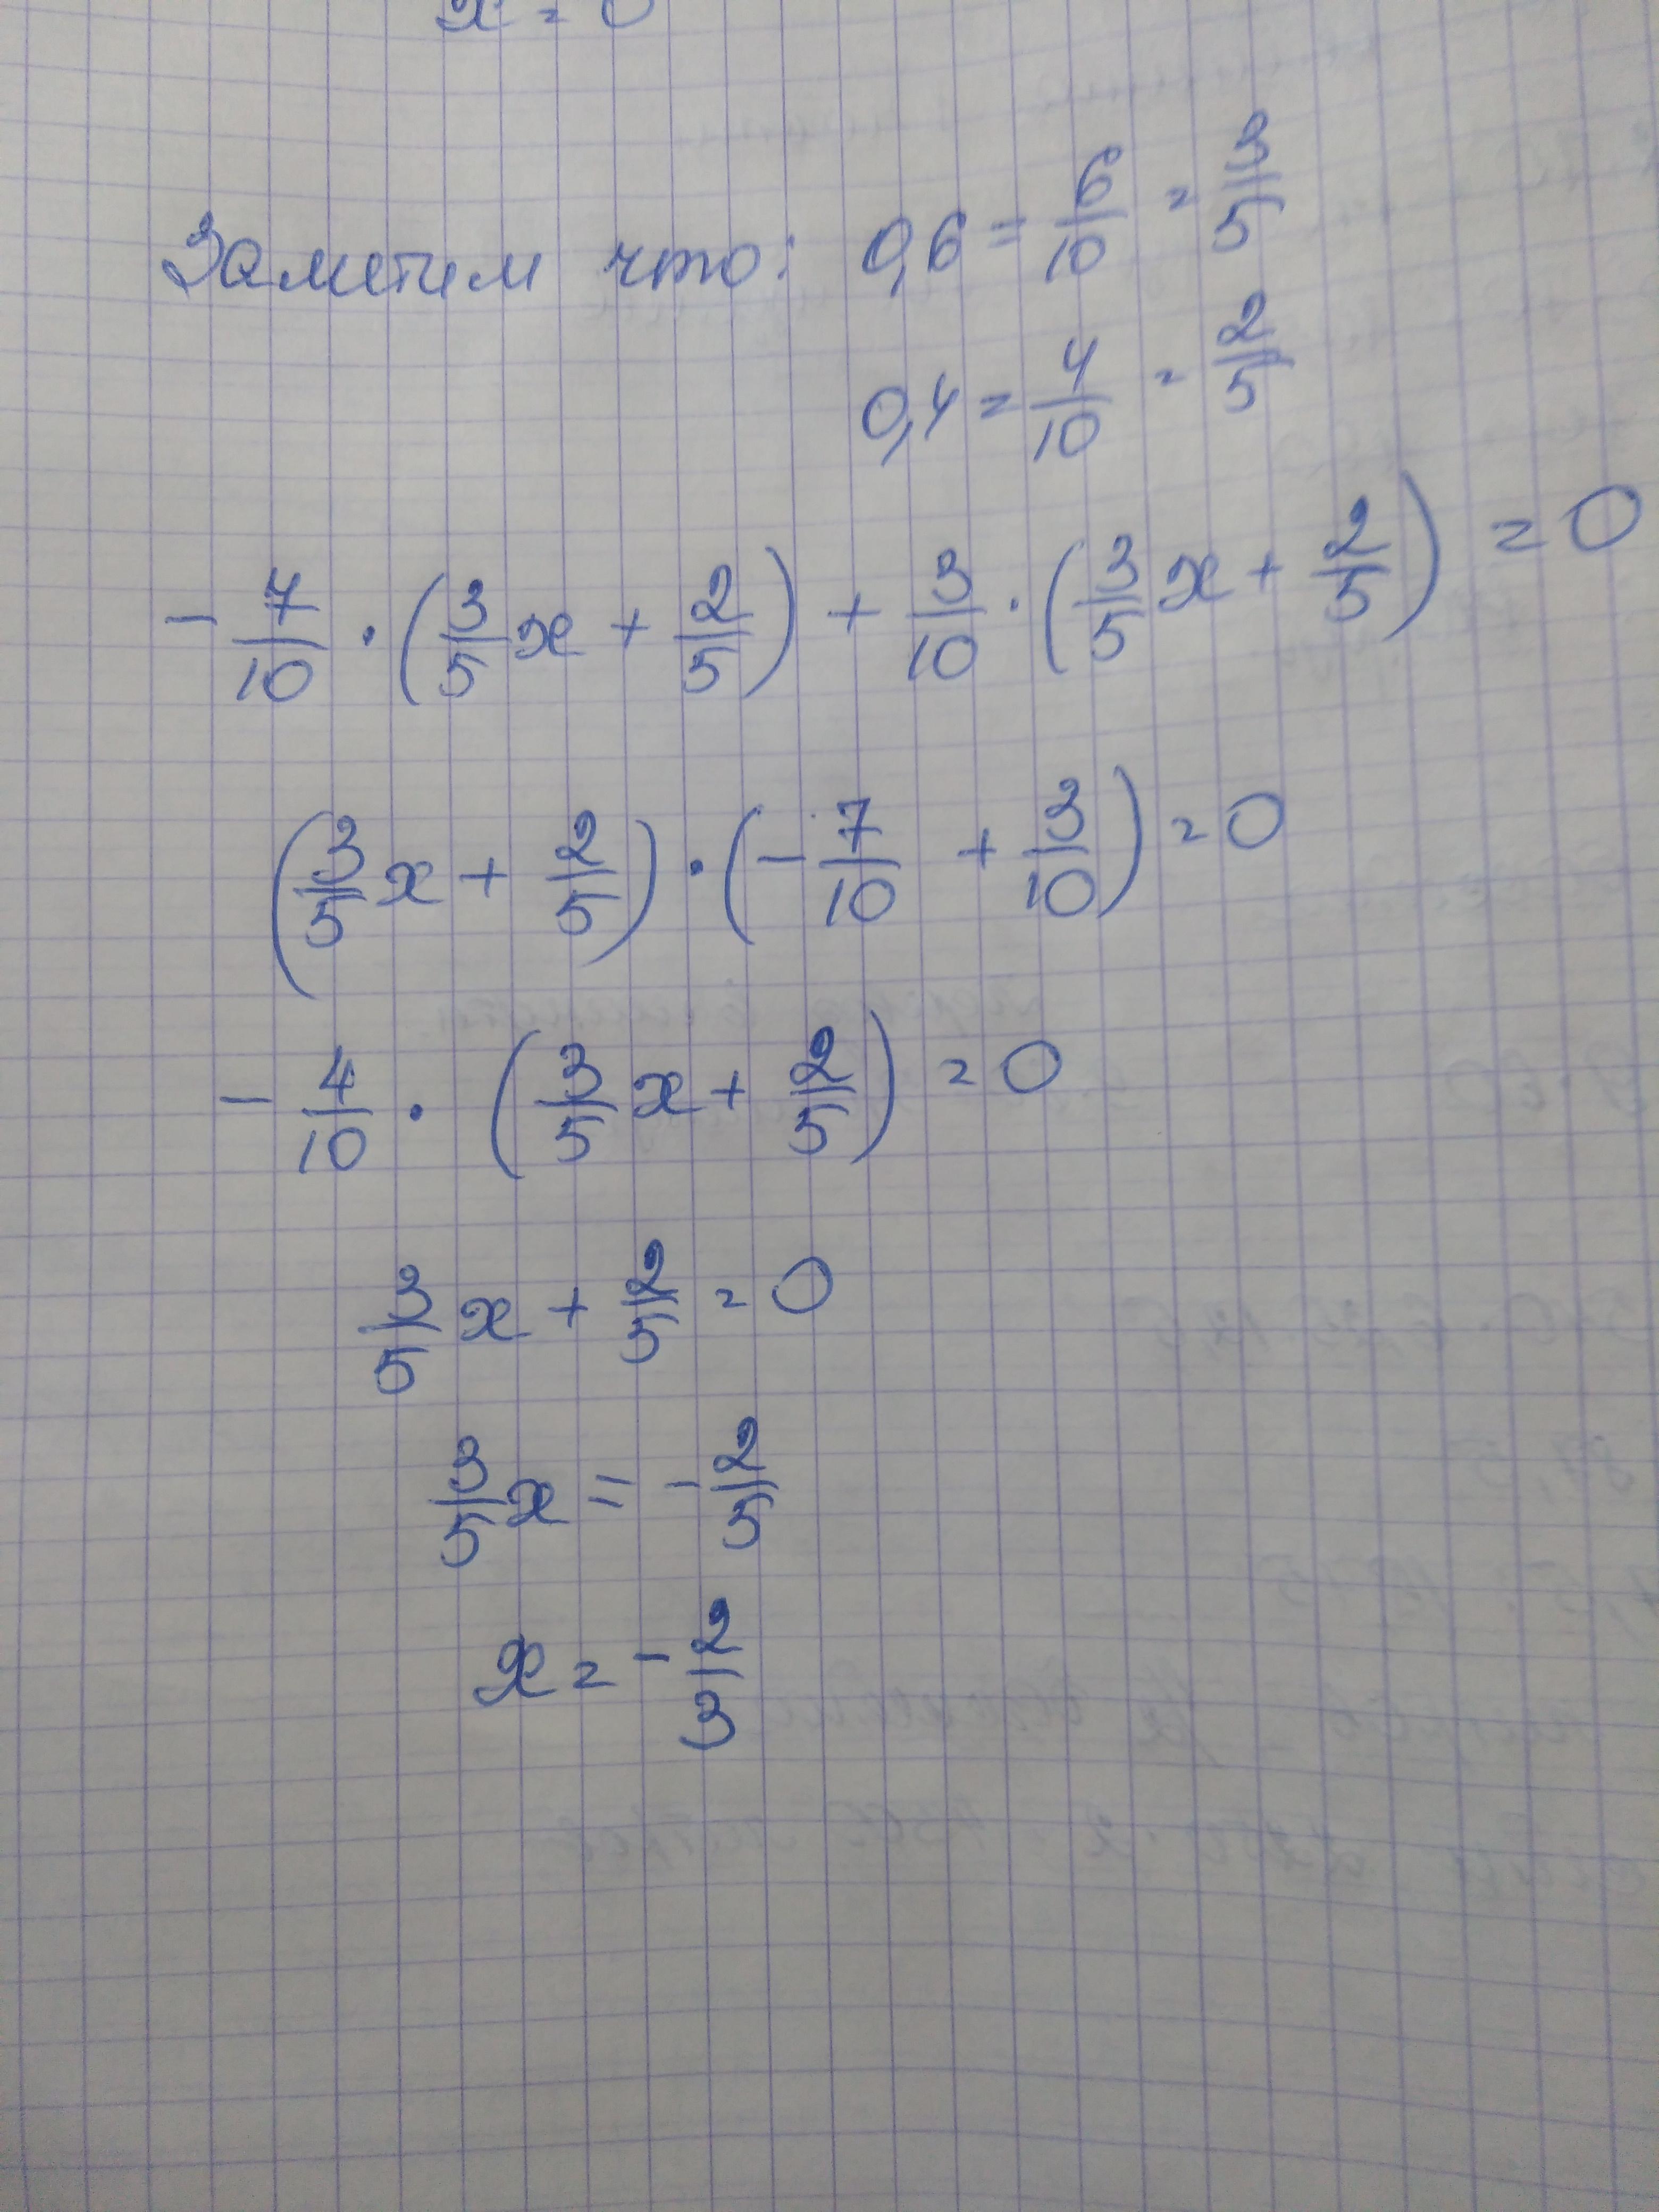 x = 0
Заметим что: 0,6 = 6/10 = 3/5
0,4 = 4/10 = 2/5
- 7/10 · (3/5 x + 2/5) + 3/10 · (3/5 x + 2/5) = 0
(3/5 x + 2/5) · (- 7/10 + 3/10) = 0
- 4/10 · (3/5 x + 2/5) = 0
3/5 x + 2/5 = 0
3/5 x = - 2/5
x = - 2/3